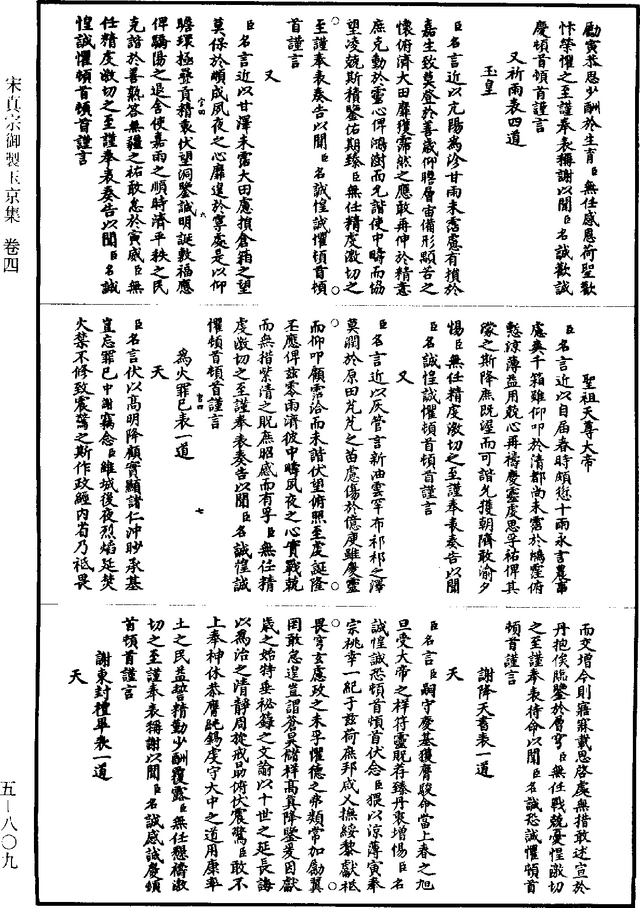 宋真宗御製玉京集 卷四
勵寅恭思少酬於生育臣無任感恩荷聖歡
忭榮懼之至謹奉表稱謝以聞臣名誠歡誠
慶頓首頓首謹言
又祈雨表四道
玉皇
臣名言近以亢陽為沴甘雨未霑慮有損於
嘉生致莫登於善歲仰瞻層宙備形顒若之
懷俯濟大田靡獲霈然之應敢再伸於精意
庶克動於靈心俾鴻澍而允諧使中疇而協
望凌兢斯積鑒佑期臻臣無任精虔激切之
至謹奉表奏告以聞臣名誠惶誠懼頓首頓
首謹言
又
臣名言近以甘澤未霑大田慮損倉箱之望
莫保於順成夙夜之心靡遑於寧處是以仰
瞻環極疊貢精衷伏望洞鑒誠明誕敷福應
官四 六
俾驕陽之退舍使嘉雨之順時濟平秩之民
克諧於善熟答無疆之祐敢怠於寅威臣無
任精虔激切之至謹奉表奏告以聞臣名誠
惶誠懼頓首頓首謹言
聖祖天尊大帝
臣名言近以自屆春時頗愆十雨永言農事
慮失千箱雖仰叩於清都尚未霑於鴻霔俯
慙涼薄益用兢心再禱慶靈虔思孚祐俾其
濛之斯降庶既渥而可諧允獲朝隮敢渝夕
惕臣無任精虔激切之至謹奉表奏告以聞
臣名誠惶誠懼頓首頓首謹言
又
臣名言近以灰管言新油雲罕布祁祁之澤
莫潤於原田芃芃之苗慮傷於億庾雖慶靈
而仰叩顧霑洽而未諧伏望俯照至虔誕隆
丕應俾茲零雨濟彼中疇夙夜之心實戰兢
而無措紫清之貺庶昭感而有孚臣無任精
虔激切之至謹奉表奏告以聞臣名誠惶誠
懼頓首頓首謹言
官四 七
為火罪已表一道
天
臣名言伏以高明降顧實顯諸仁沖眇承基
豈忘罪已中謝竊念臣雒城後夜烈焰延焚
火禁不修致震驚之斯作政經内省乃祗畏
而交增今則寤寐載思啓處無措敢述宣於
丹抱俟臨鑒於層穹臣無任戰兢憂惶激切
之至謹奉表待命以聞臣名誠恐誠懼頓首
頓首謹言
謝降天書表一道
天
臣名言臣嗣守慶基獲膺駿命當上春之旭
旦受大帝之祥符靈貺荐臻丹衷增惕臣名
誠惶誠恐頓首頓首伏念臣猥以涼薄寅奉
宗祧幸一紀于茲荷庶邦咸乂撫綏黎獻祗
畏穹玄慮政之未孚懼德之弗類常加勵翼
罔敢怠遑豈謂蒼昊儲祥高真降鑒爰因獻
歲之始特垂秘籙之文諭以十世之延長誨
以為治之清靜周旋戒勗俯伏震驚臣敢不
上奉神休恭膺純錫虔守大中之道用康率
土之民益誓精勤少酬覆露臣無任懇禱激
切之至謹奉表稱謝以聞臣名誠感誠慶頓
首頓首謹言
謝東封禮畢表一道
天
五—八〇九